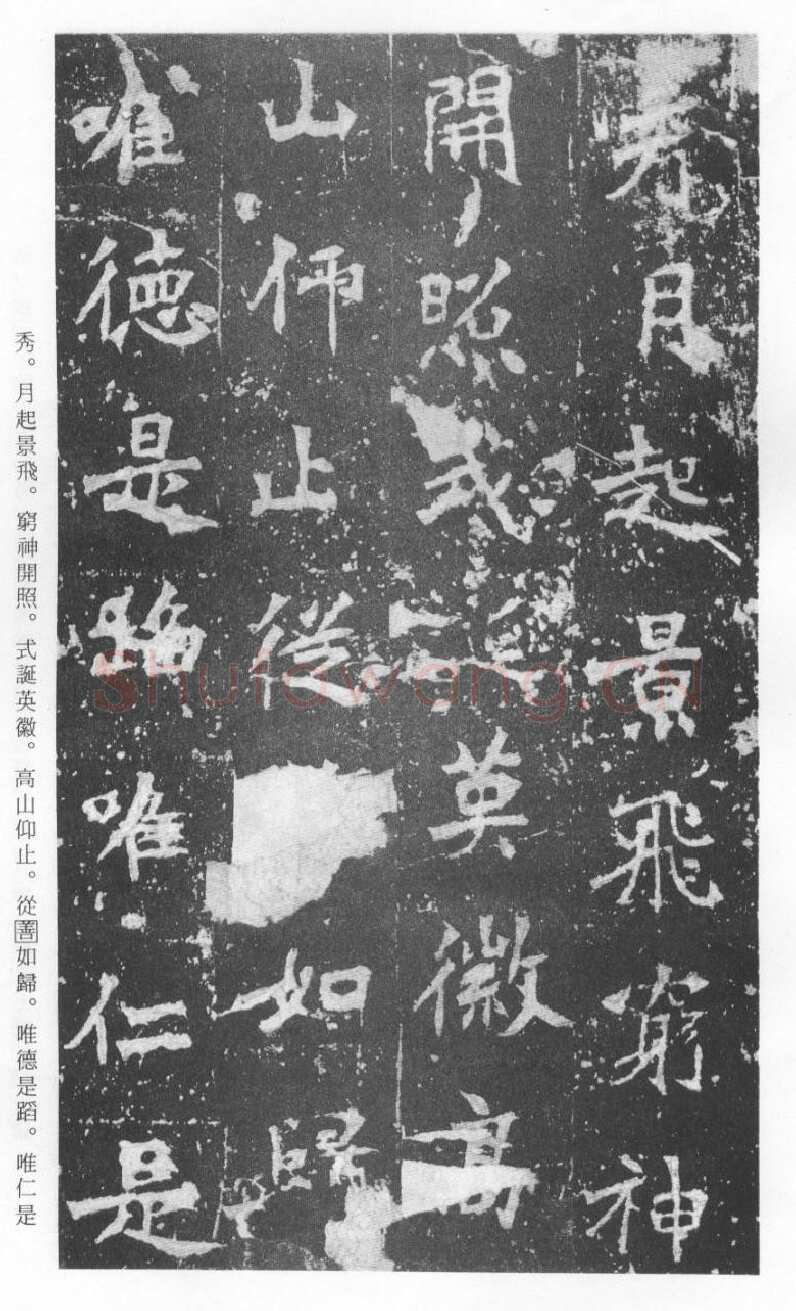 秀月起景飛窮神
開照式誕英徽高
山仰止從如歸
唯德是蹈唯仁是
秀。月起景飛。窮神開照。式誕英徽。高山仰止。從善如歸。唯德是蹈。唯仁是
Shufawang.CN